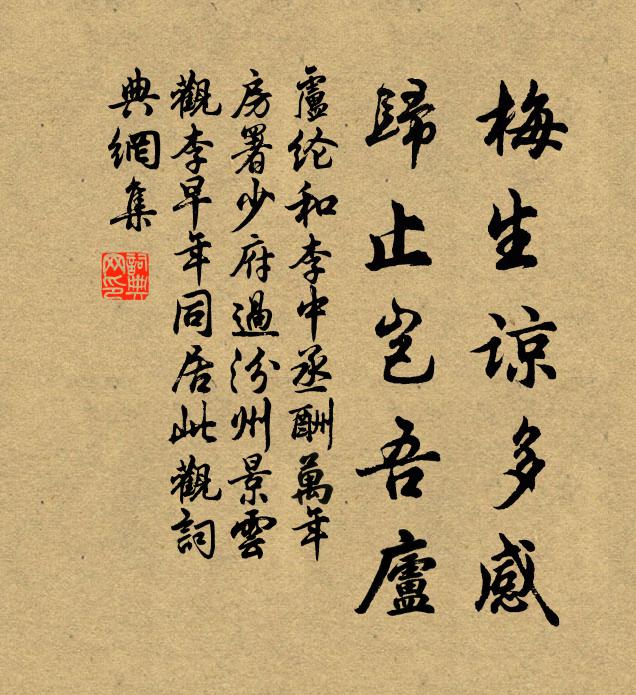 梅生諒多感
歸止豈吾廬
盧纶和李中丞酬萬年
房署少府過汾州景雲
觀李早年同居此觀詞
典網集
詞典网印